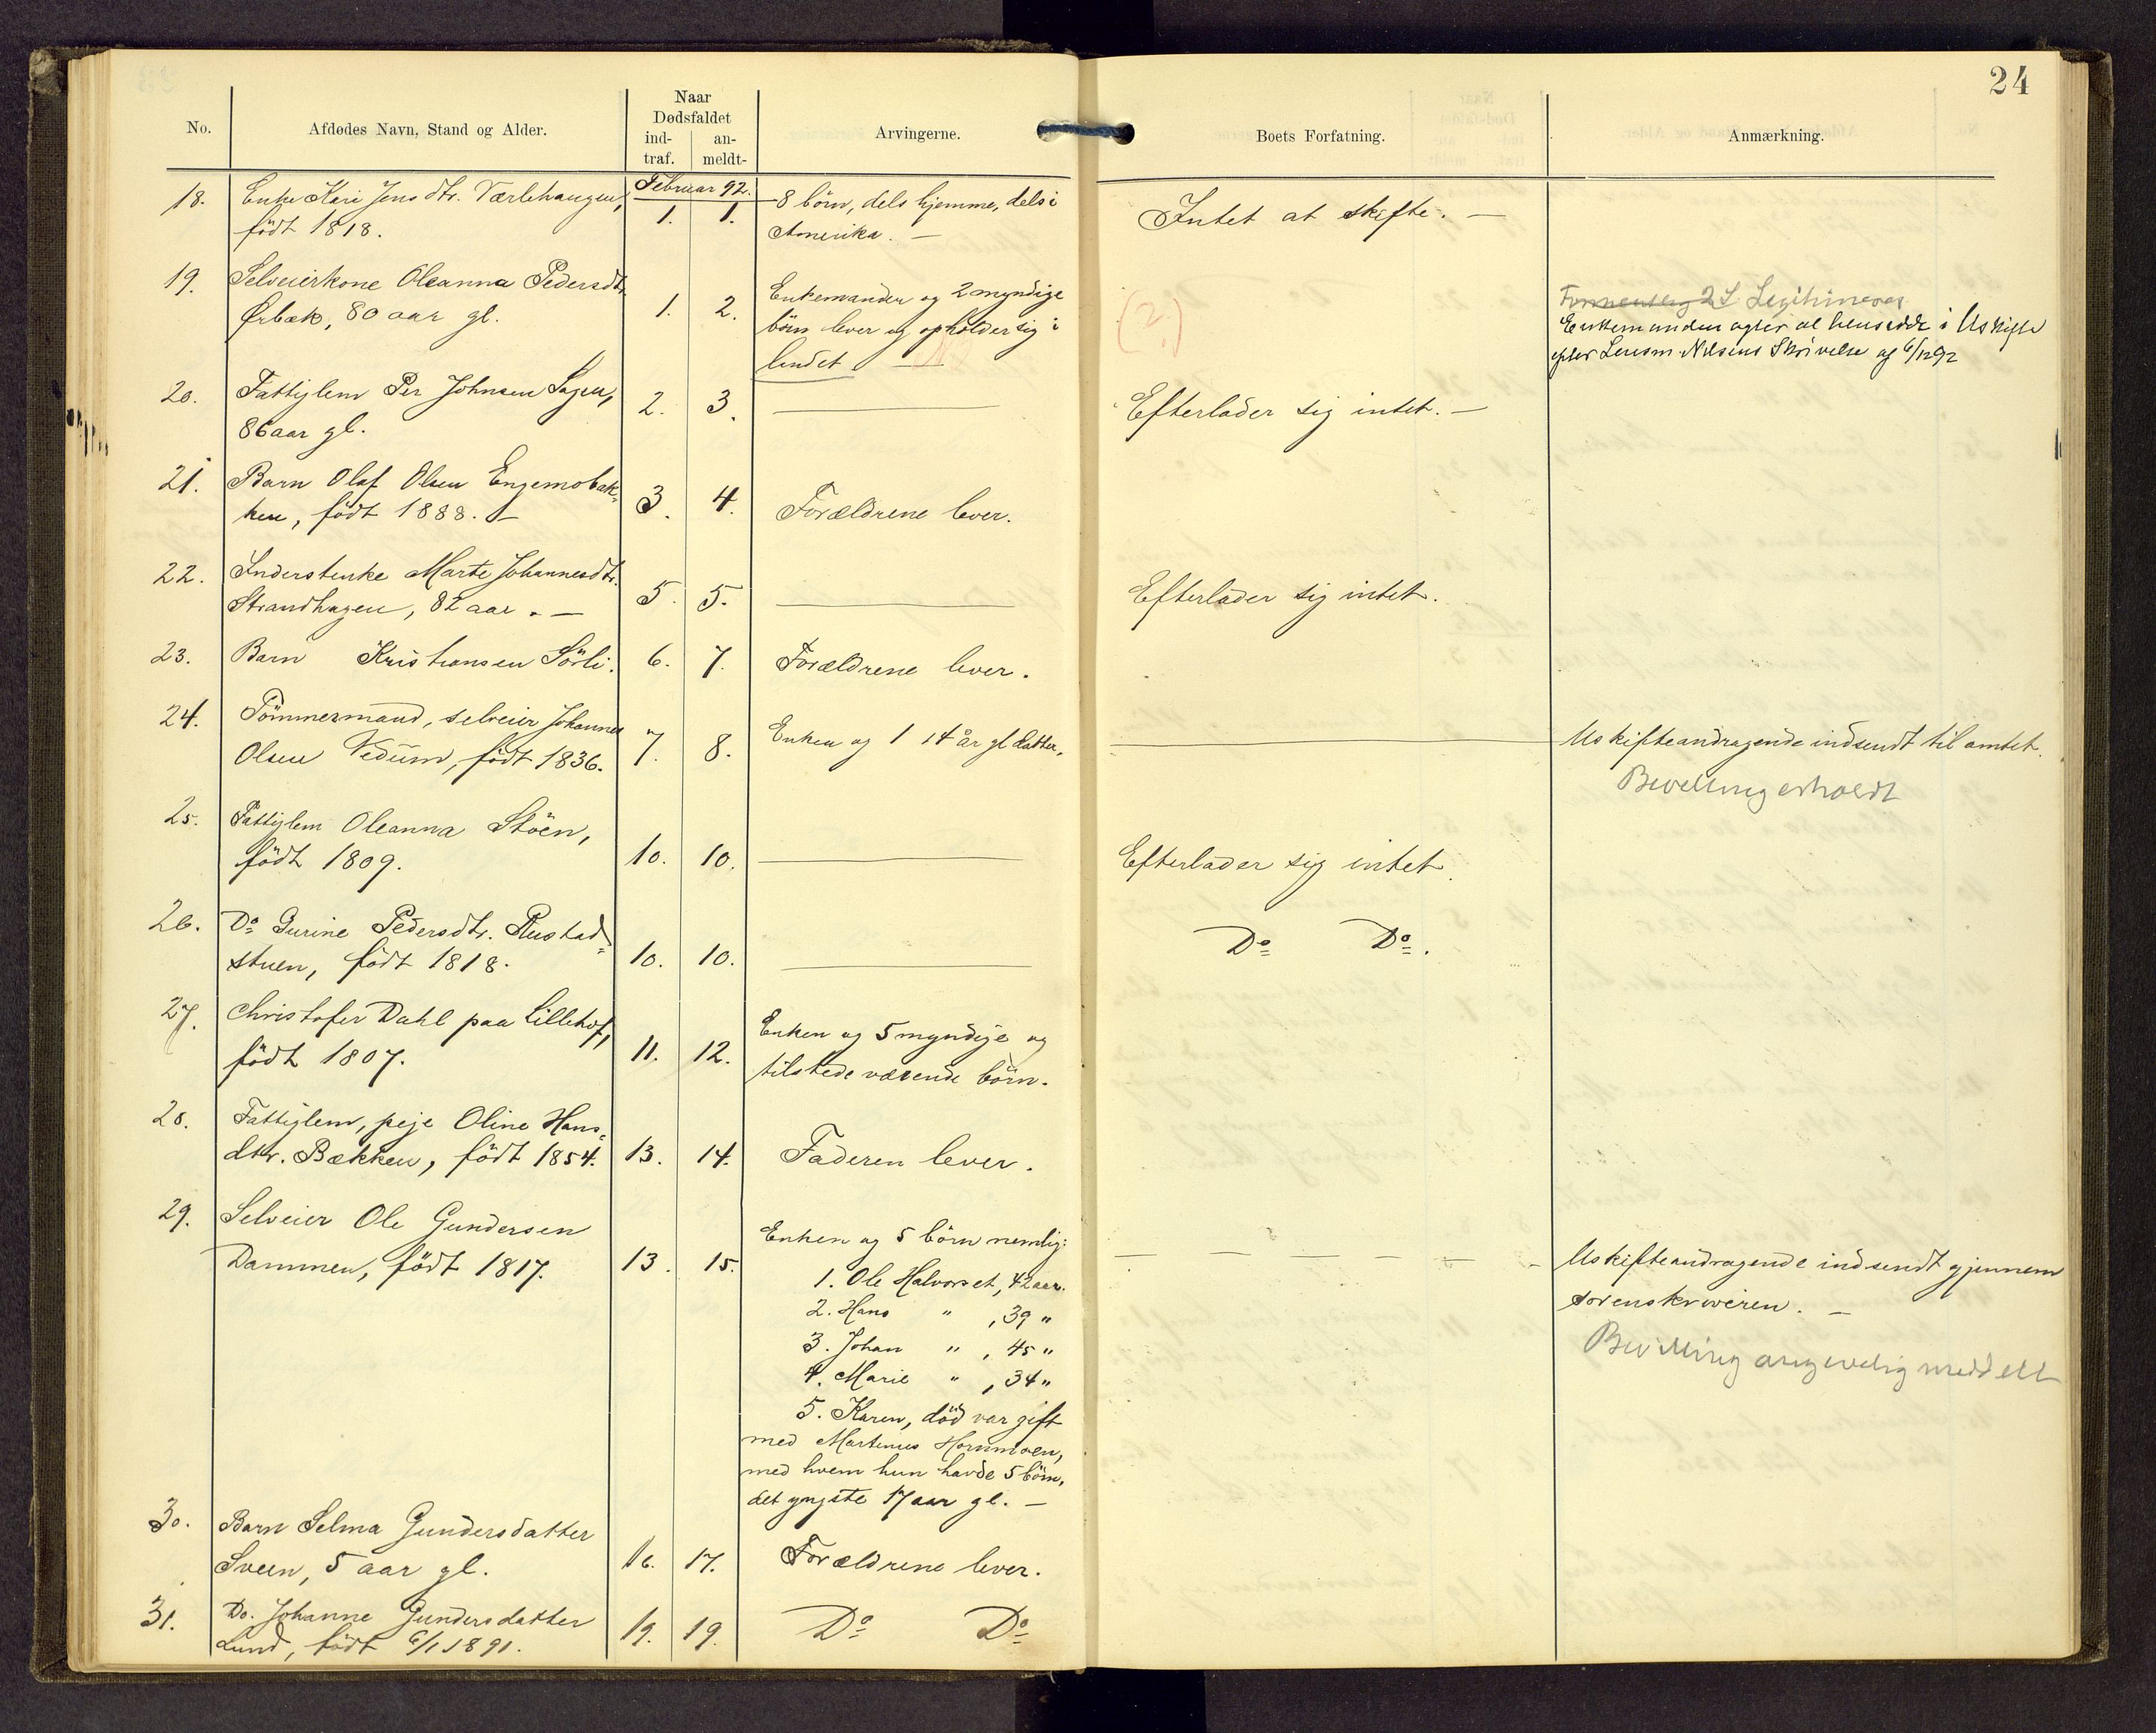 24
Naar
Dødsfaldet
No.
Afdødes Navn, Stand og Alder.
ind-
traf.
an-
meldt-
Arvingerne.
Boets Forfatning.
Anmærkning.
Februar 92.
18. Enke Kari Jensdtr. Værlehaugen, 1. 1. 8 börn, dels hjemme, dels i Intet at skifte. —
födt 1818. Amerika. —
19. Selveierkone Oleanna Pedersdtr. 1. 2. Enkemanden og 2 myndige (2.) Legitimeres
Ørbæk, 80 aar gl. börn lever og opholder sig i Enkemanden agter at hensidde i Uskifte
landet — efter Lensm. Nilsens Skrivelse af 6/12 92
20. Fattiglem Per Johnsen Sagen, 2. 3. — Efterlader sig intet. —
86 aar gl.
21. Barn Olaf Olsen Engemobak- 3. 4. Forældrene lever.
ken, födt 1888. —
22. Inderstenke Marte Johannesdtr. 5. 5. — Efterlader sig intet.
Strandhagen, 82 aar. —
23. Barn Kristiansen Sörli. 6. 7. Forældrene lever.
24. Tömmermand, selveier Johannes 7. 8. Enken og 1 14 år gl datter. — Uskifteandragende indsendt til amtet.
Olsen Vedum, födt 1836. Bevilling erholdt
25. Fattiglem Oleanna Stöen, 10. 10. — Efterlader sig intet.
födt 1809.
26. Do Gurine Pedersdtr. Rustad= 10. 10. — Do Do.
stuen, födt 1818.
27. Christofer Dahl paa Lillehof, 11. 12. Enken og 5 myndige og
födt 1807. tilstedeværende börn.
28. Fattiglem, pige Oline Hans= 13. 14. Faderen lever.
dtr. Bækken, födt 1854.
29. Selveier Ole Gundersen 13. 15. Enken og 5 börn nemlig: — — — — — Uskifteandragende indsendt gjennem
Dammen, födt 1817. 1. Ole Halvorset, 42 aar. sorenskriveren. —
2. Hans " , 39 " Bevilling meddelt
3. Johan " , 45 "
4. Marie " , 34 "
5. Karen, död var gift
med Martinus Hornmoen,
med hvem hun havde 5 börn,
det yngste 17 aar gl. —
30. Barn Selma Gundersdatter 16. 17. Forældrene lever.
Sveen, 5 aar gl.
31. Do. Johanne Gundersdatter 19. 19. Do Do
Lund, födt 6/1 1891.